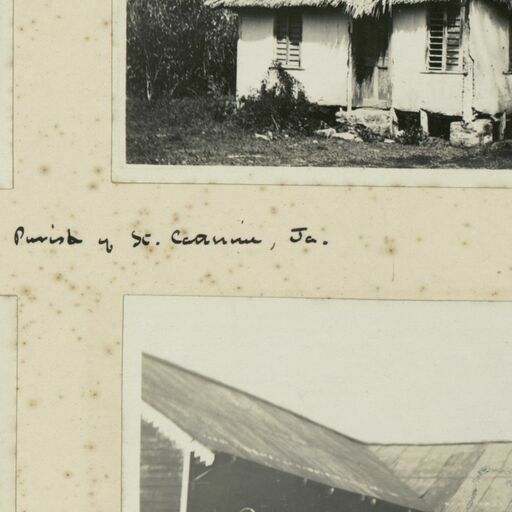 Parish of St. Catherine, Ja.